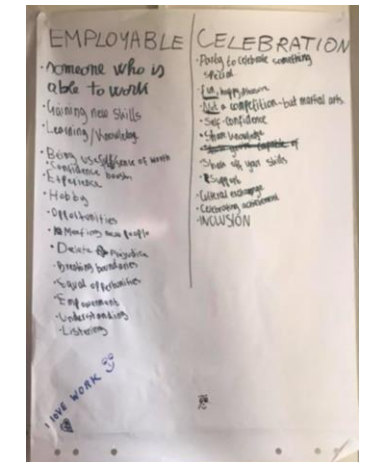 EMPLOYABLE
• someone who is
able to work
• Gaining new skills
• Learning/Knowledge
• Being useful/sence of worth
• Confidence boost
• Experience
• Hobby
• Opportunities
• Meeting new people
• Delete Prejudice
• Breaking boundaries
• Equal opportunities
• Empowerment
• Understanding
• Listening
I LOVE WORK
CELEBRATION
• Party to celebrate something
special
• Fun, happy,
• Not a competition - but martial arts.
• Self-confidence
• knowledge
• Show off your skills
• Support
• Cultural exchange
• Celebrating achievement
• INCLUSIÓN